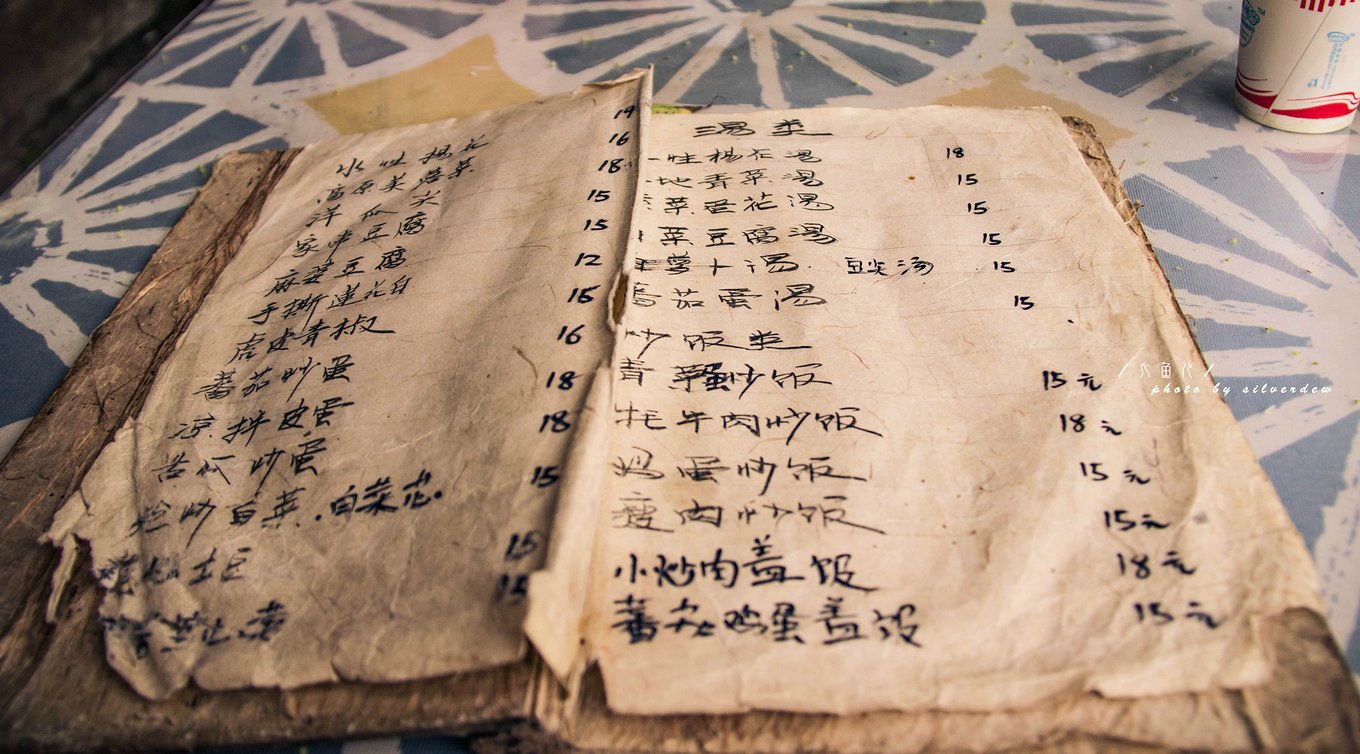 19
水性杨花 16
高原美菜 18
洋瓜尖 15
家常豆腐 15
麻婆豆腐 12
手撕莲花白 15
虎皮青椒 16
蕃茄炒蛋 18
凉拌皮蛋 18
苦瓜炒蛋 15
炝炒白菜.白菜芯.
土豆 15
15
汤类
性杨花汤 18
地青菜汤 15
菜蛋花汤 15
菜豆腐汤 15
萝卜汤. 豆尖汤 15
番茄蛋汤 15
炒饭类
青 炒饭 15元
牦牛肉炒饭 18元
鸡蛋炒饭 15元
瘦肉炒饭 15元
小炒肉盖饭 18元
蕃茄鸡蛋盖饭 15元
photo by silverdew